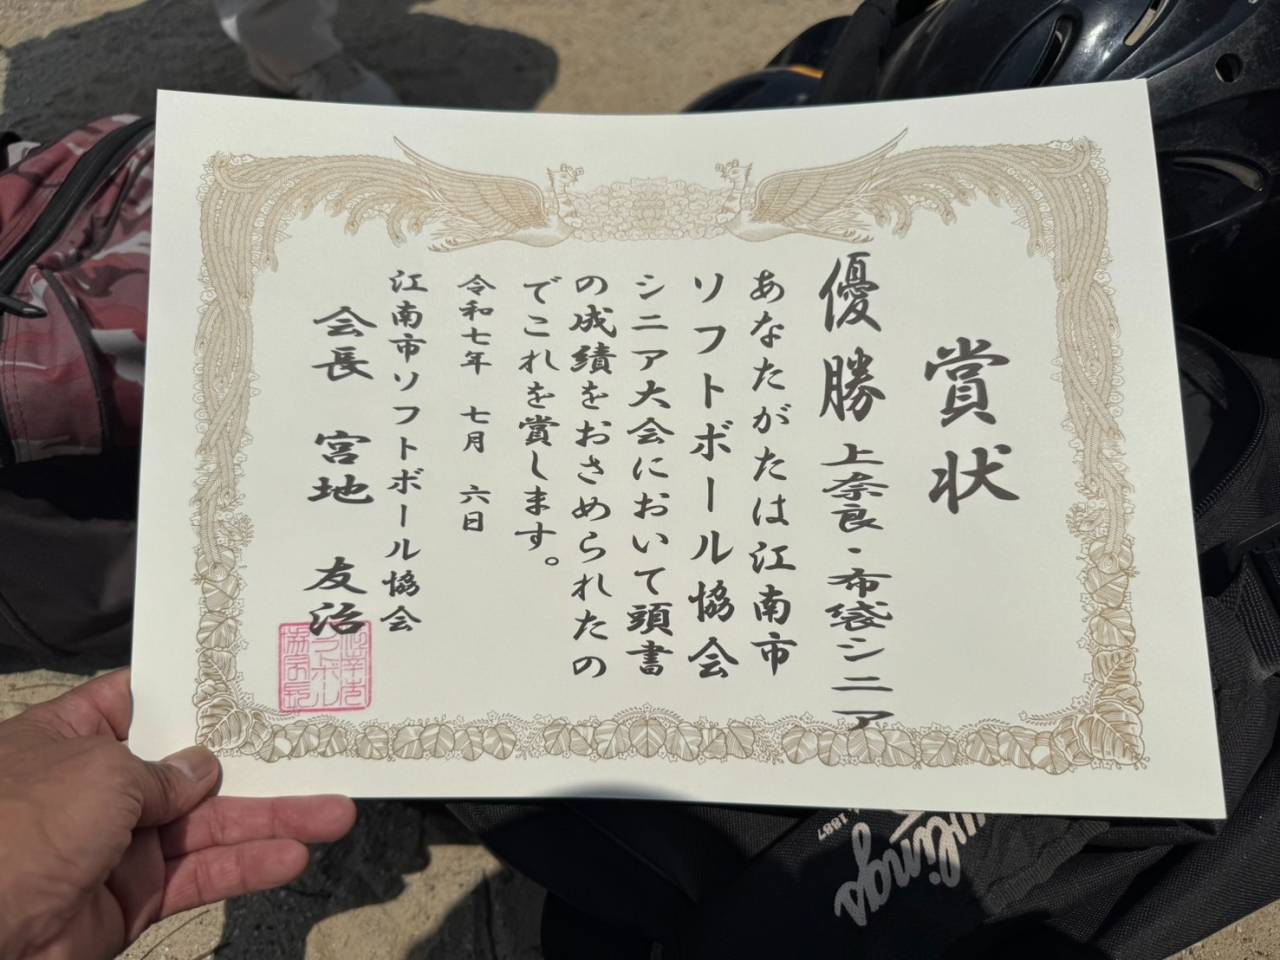 賞状
優勝 上奈良・布袋シニア
あなたがたは江南市
ソフトボール協会
シニア大会において頭書
の成績をおさめられたの
でこれを賞します。
令和七年 七月 六日
江南市ソフトボール協会
会長 宮地 友治
1887